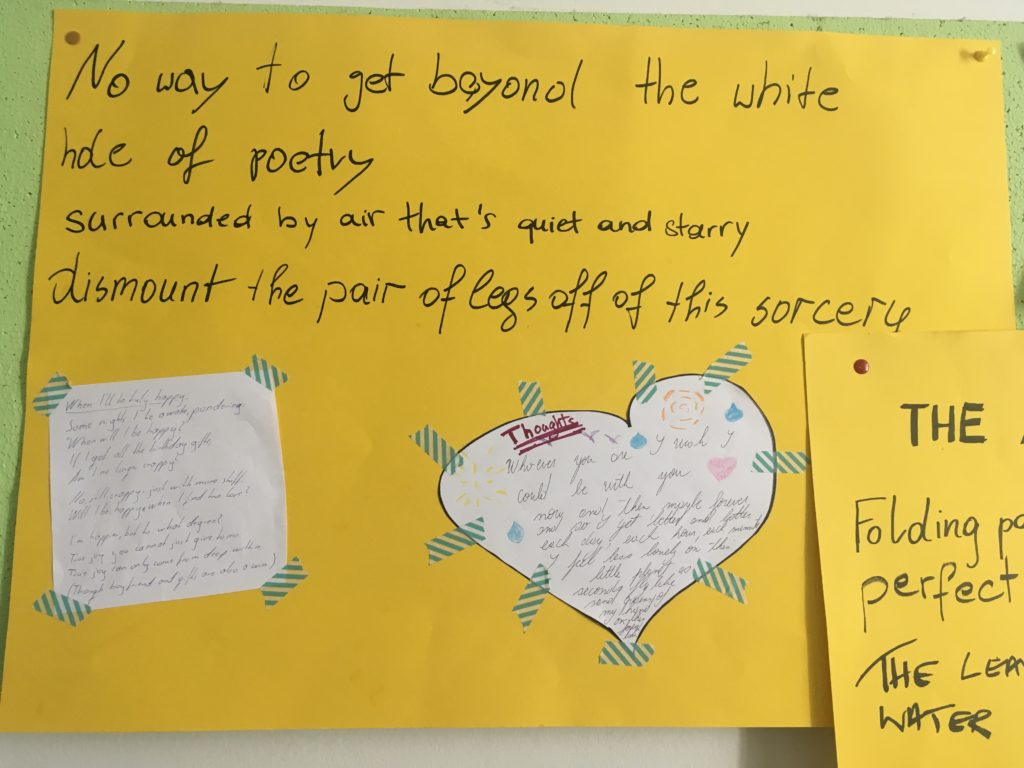 No way to get beyond the white
hole of poetry
surrounded by air that's quiet and starry
dismount the pair of legs off of this sorcery
When I'll be truly happy.
Some nights, I lie awake, pondering
When will I be happy?
If I get all the birthday gifts
Am I no longer crappy?
No, still crappy, just with more stuff.
Will I be happy when I find true love?
I'm happier, but to what degree?
True joy you cannot just give to me
True joy can only come from deep within
(Though boyfriend and gifts are also a win)
Thoughts
Whoever you are I wish I
could be with you
now and then maybe forever
and so I get better and better
each day each hour each minute
I feel less lonely on this
little planet as
seconds fly like
sand
my
on this
THE
Folding
perfect
THE
WATER